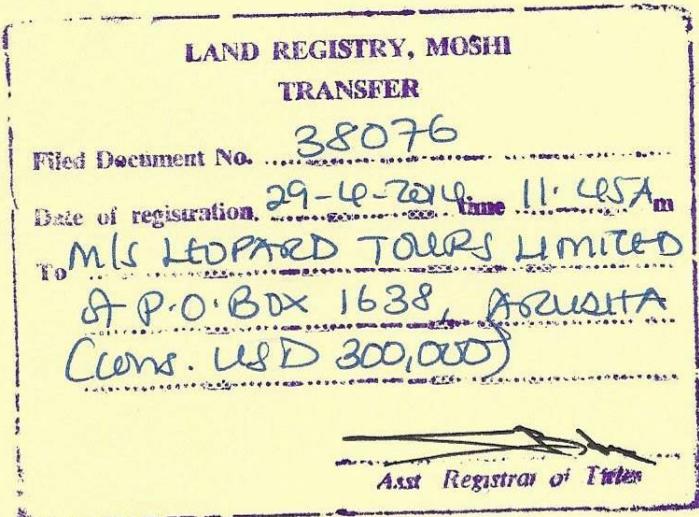 LAND REGISTRY, MOSHI
TRANSFER
Filed Document No. 38076
Date of registration. 29-4-2014 time 11.45Am
To M/S LEOPARD TOURS LIMITED
of P.O.BOX 1638, ARUSHA
(Cons. USD 300,000)
Asst Registrar of Titles